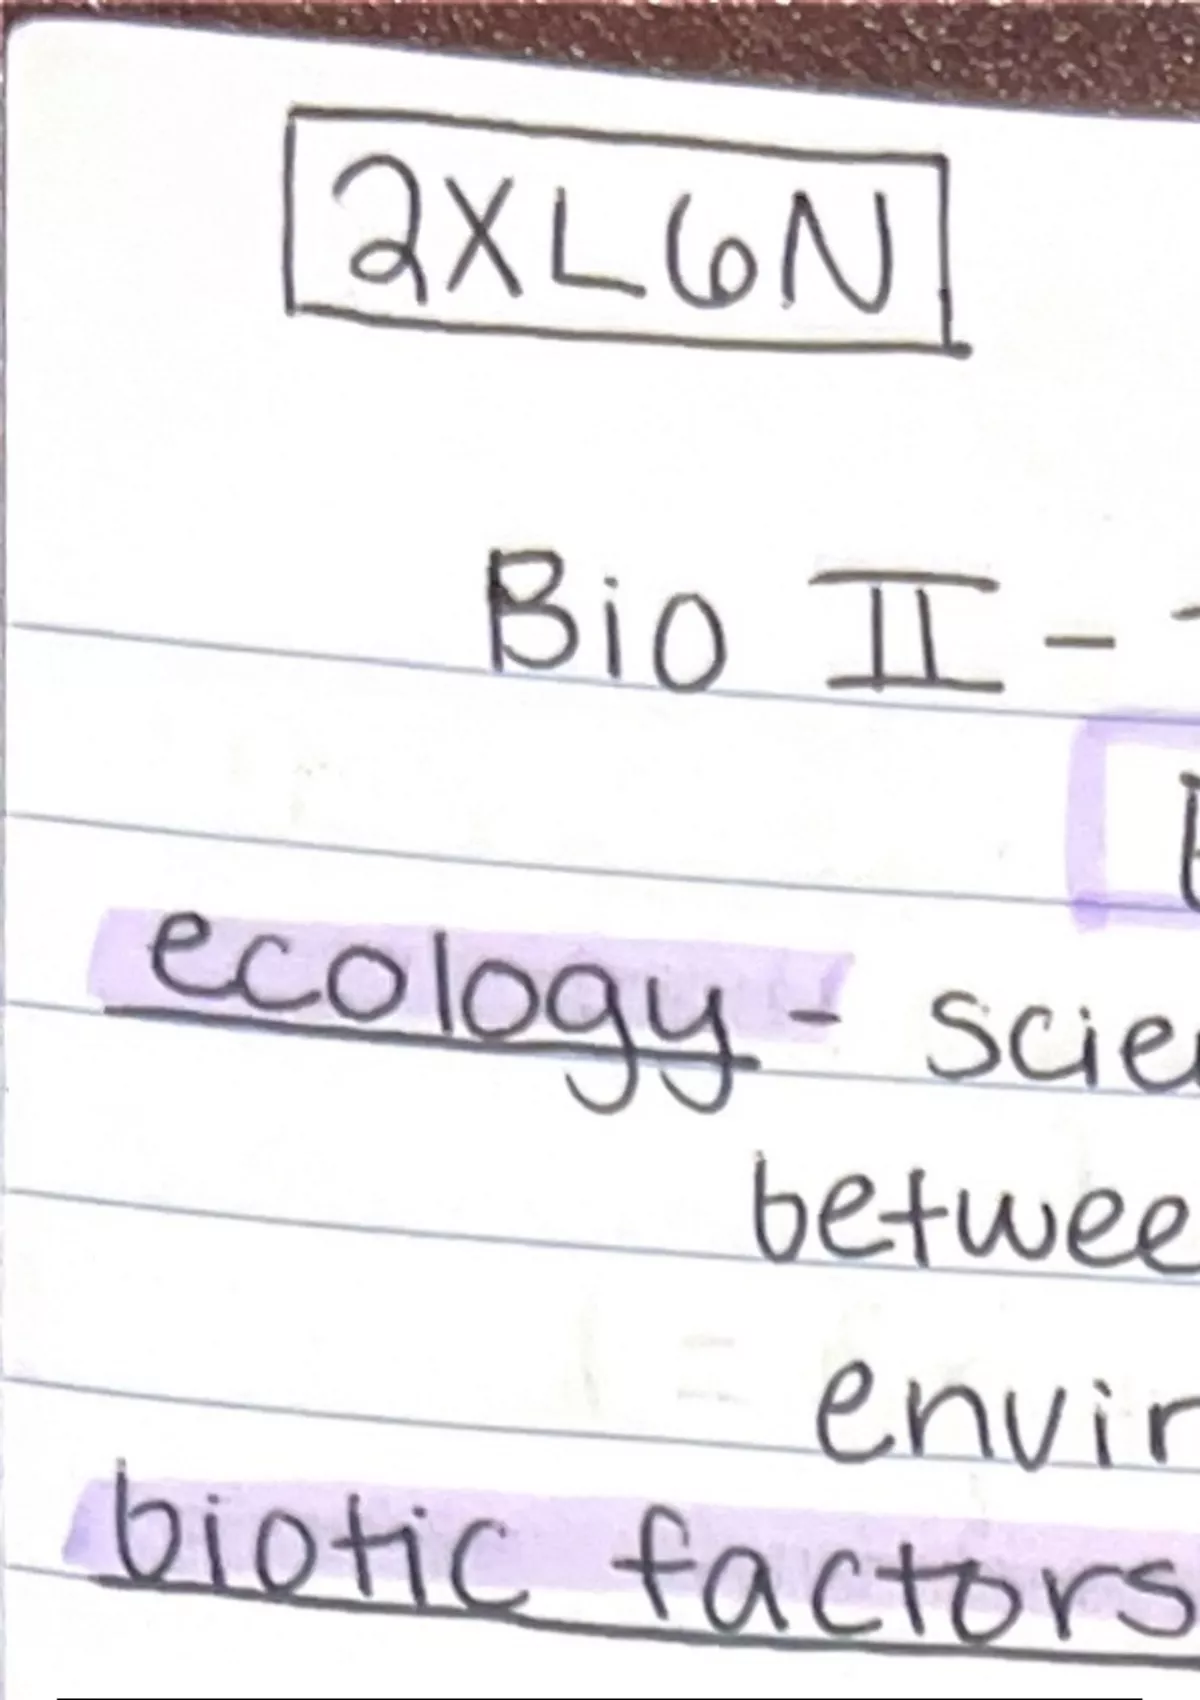 2XL6N
Bio II -
ecology - scie
betwee
envir
biotic factors